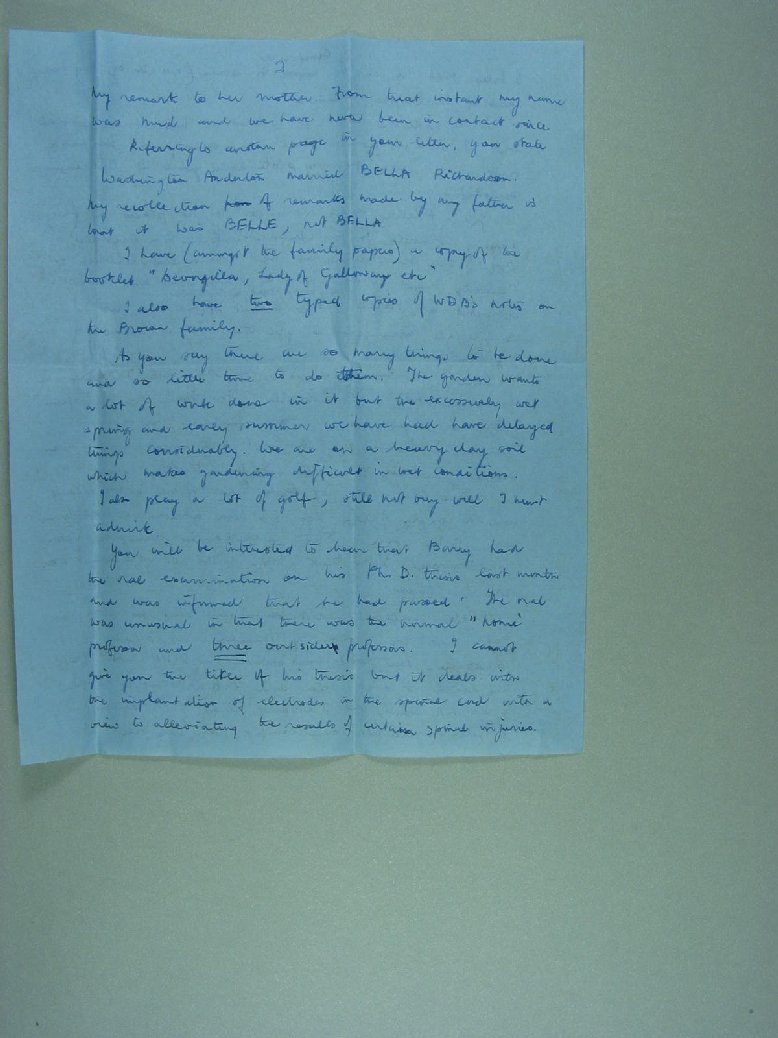 2
my remark to her mother. From that instant my name
was mud and we have never been in contact since
Referring to another page in your letter, you state
Washington Anderton married BELLA Richardson.
My recollection of remarks made by my father is
that it was BELLE, not BELLA
I have (amongst the family papers) a copy of the
booklet "Devorgilla, Lady of Galloway etc"
I also have two typed copies of WDB's notes on
the Brown family.
As you say there are so many things to be done
and so little time to do them. The garden wants
a lot of work done in it but the excessively wet
spring and early summer we have had have delayed
things considerably. We are on a heavy clay soil
which makes gardening difficult in wet conditions.
I also play a lot of golf, still not very well I must
admit.
You will be interested to hear that Barry had
the oral examination on his Ph. D. thesis last month
and was informed that he had passed. The oral
was unusual in that there was the normal "home"
professor and three outside professors. I cannot
give you the title of his thesis but it deals with
the implantation of electrodes in the spinal cord with a
view to alleviating the results of certain spinal injuries.